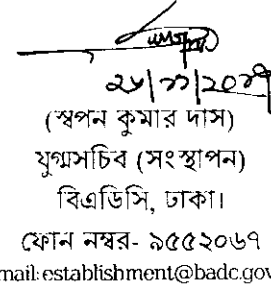 (স্বপন কুমার দাস)
যুগ্মসচিব (সংস্থাপন)
বিএডিসি, ঢাকা।
ফোন নম্বর- ৯৫৫২০৬৭
mail: establishment@badc.gov